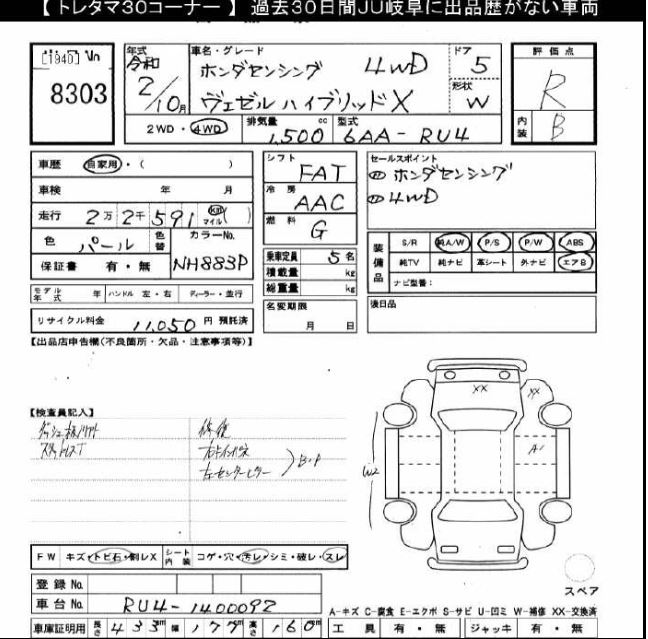 【 トレタマ30コーナー 】 過去30日間JU岐阜に出品歴がない車両
[1940] Vn
8303
年式
令和
2/10月
車名・グレード
ホンダセンシング 4WD
ヴェゼル ハイブリッド X
ドア
5
形状
W
評価点
R
内装
B
2WD・4WD
排気量
1,500 cc
型式
6AA-RU4
車歴 自家用・( )
車検 年 月
走行 2万2千591 Km マイル( )
色 パール 色替
カラーNo.
NH883P
保証書 有・無
モデル年式 年 ハンドル 左・右 ディーラー・並行
リサイクル料金 11,050 円 預託済
シフト
FAT
冷房
AAC
燃料
G
乗車定員 5 名
積載量 kg
総重量 kg
名変期限
月 日
セールスポイント
ホンダセンシング
4WD
装備品
S/R 純A/W P/S P/W ABS
純TV 純ナビ 革シート 外ナビ エアB
ナビ型番:
後日品
【出品店申告欄(不良箇所・欠品・注意事項等)】
【検査員記入】
修復
左センターピラー
B・P
XX
XX
A1
W2
FW キズ・トビ石・割レX シート内装 コゲ・穴・汚レ・シミ・破レ・スレ
スペア
登録 No.
車台 No. RU4-1400092
A-キズ C-腐食 E-エクボ S-サビ U-凹ミ W-補修 XX-交換済
車庫証明用 長さ 433cm 幅 177cm 高さ 160cm 工具 有・無 ジャッキ 有・無